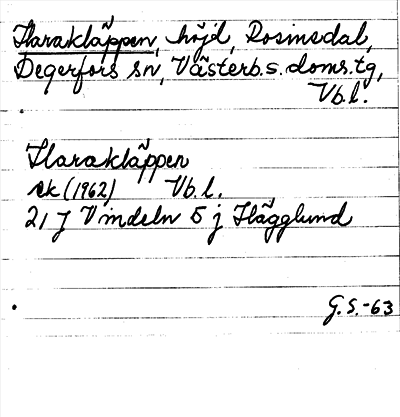 Harakläppen, höjd, Rosinedal,
Degerfors sn, Västerb.s.doms.tg,
Vb.l.
Harakläppen
ek (1962) Vb.l.
21 J Vindeln 5 j Hägglund
G.S.-63